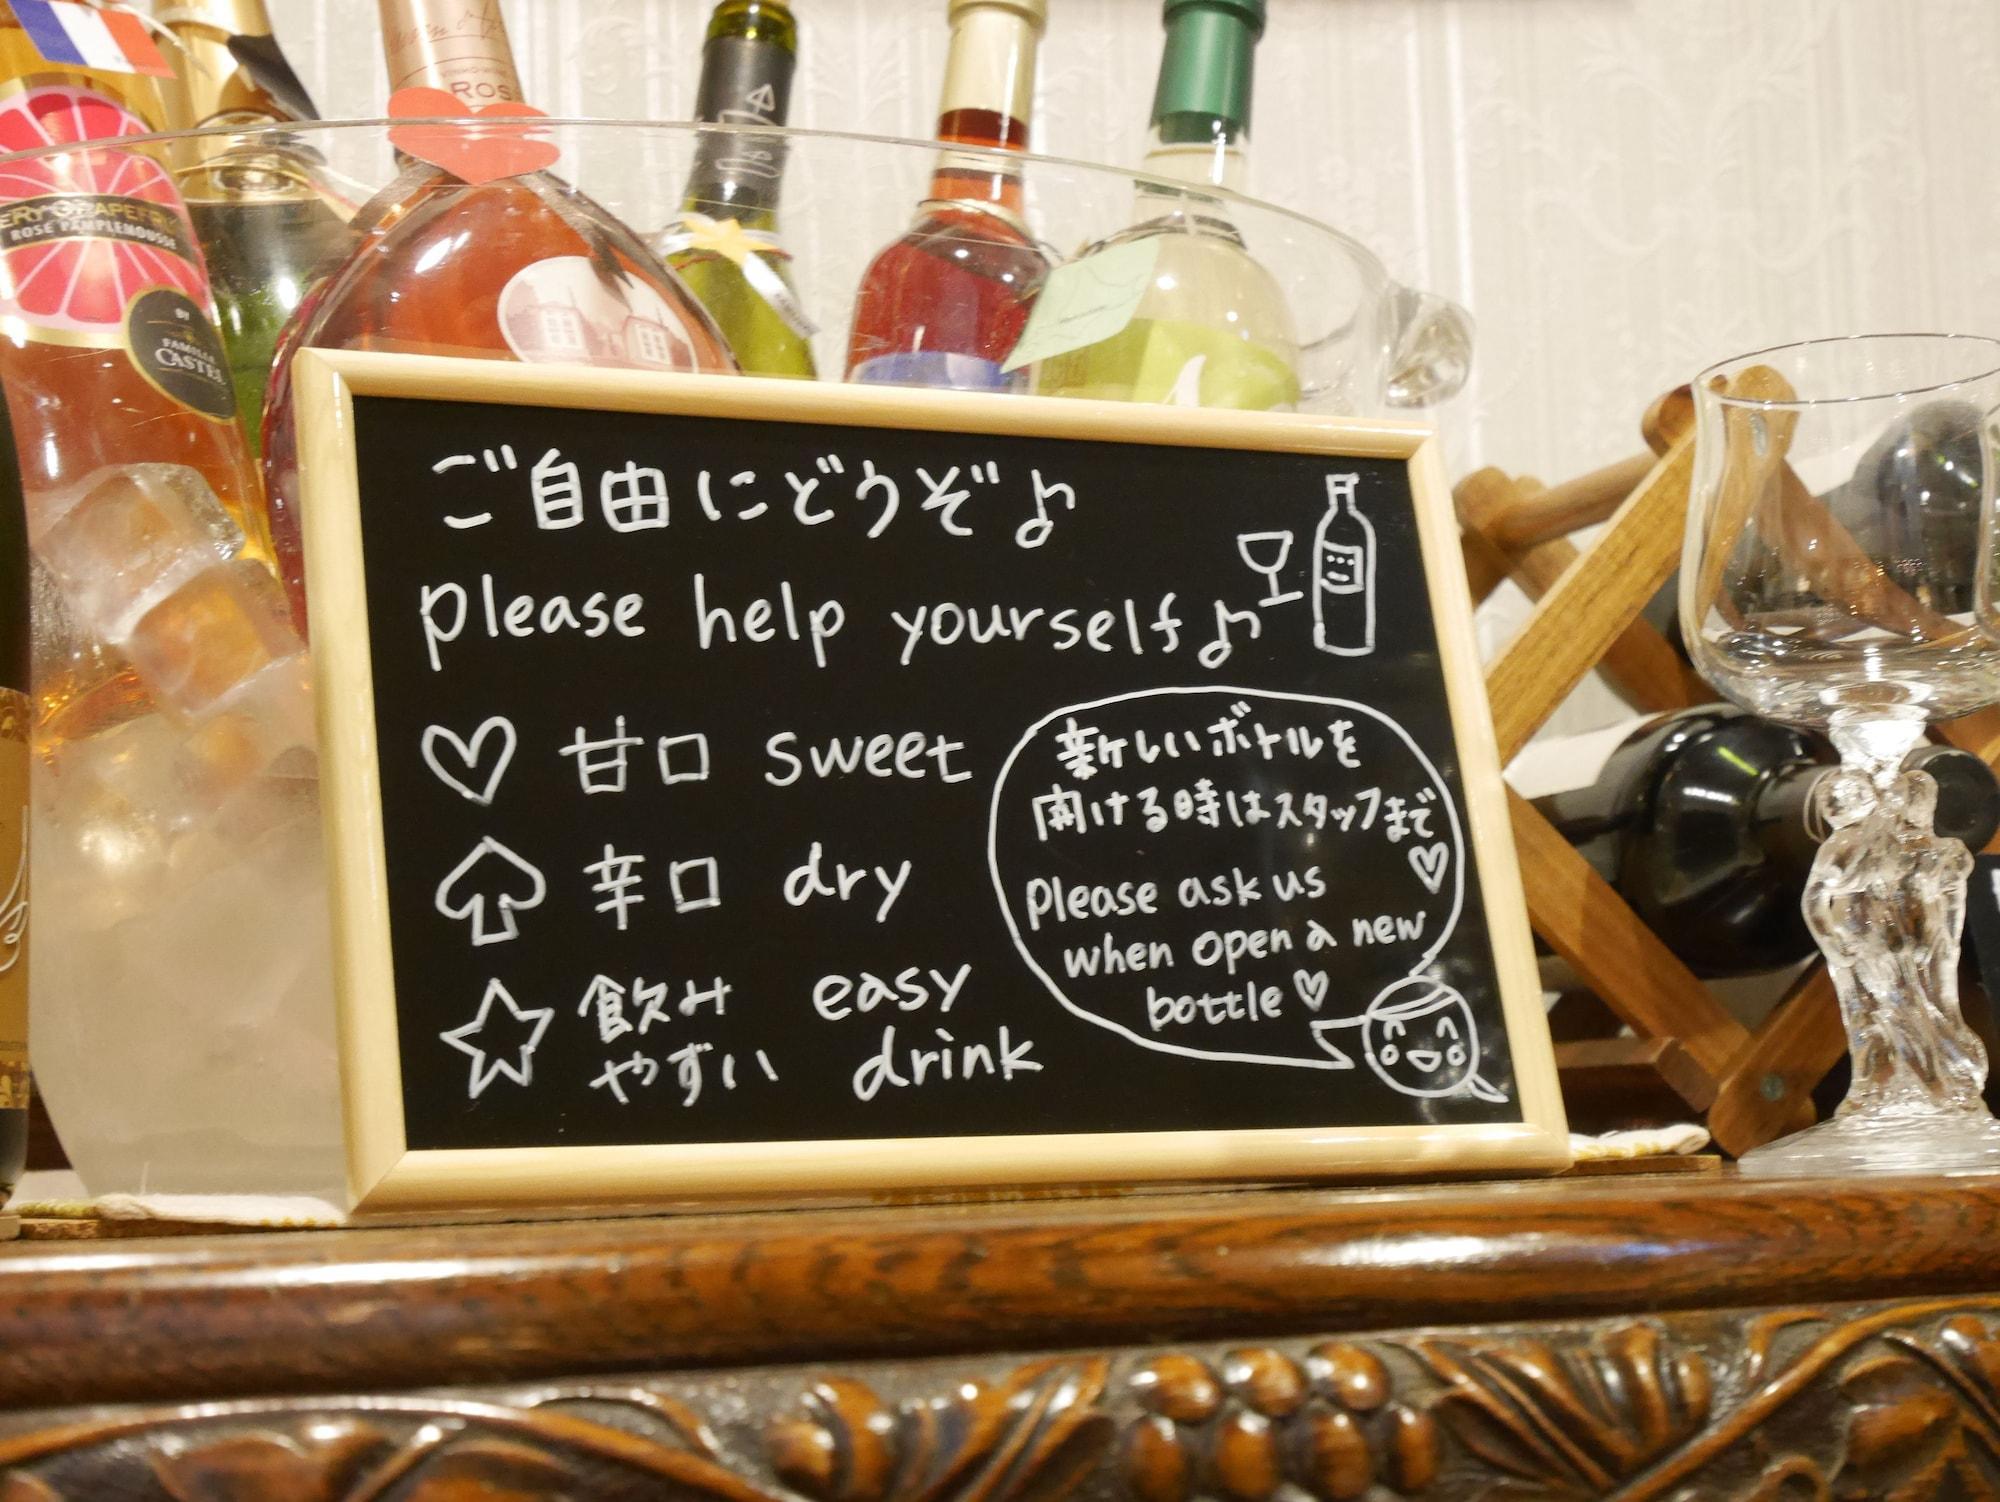 ROSE
ROSÉ PAMPLEMOUSSE
BY
FAMILLE
CASTEL
ご自由にどうぞ♪
please help yourself♪
♡ 甘口 sweet
♤ 辛口 dry
☆ 飲み easy
やずい drink
新しいボトルを
開ける時はスタッフまで
♡
Please ask us
when open a new
bottle♡